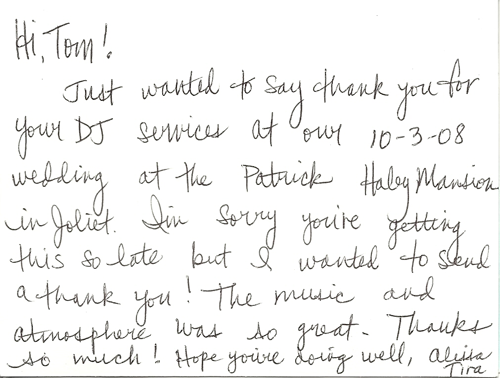 Hi, Tom!
Just wanted to say thank you for
your DJ services at our 10-3-08
wedding at the Patrick Haley Mansion
in Joliet. I'm sorry you're getting
this so late but I wanted to send
a thank you! The music and
atmosphere was so great. Thanks
so much! Hope you're doing well, Alissa
Tira